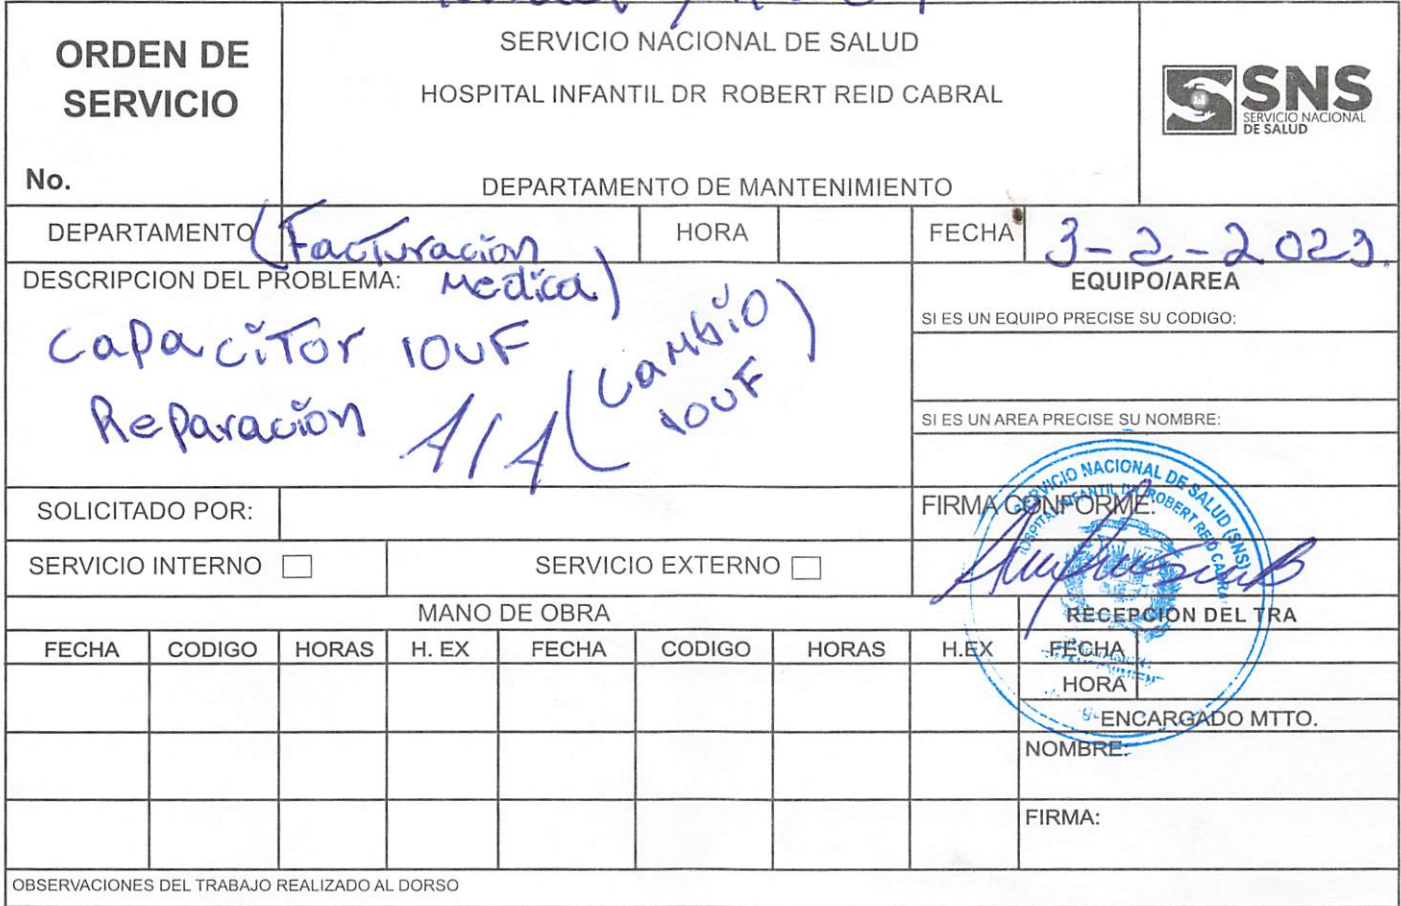 ORDEN DE
SERVICIO
No.
SERVICIO NACIONAL DE SALUD
HOSPITAL INFANTIL DR ROBERT REID CABRAL
DEPARTAMENTO DE MANTENIMIENTO
SNS
SERVICIO NACIONAL
DE SALUD
DEPARTAMENTO (Facturacion
Medica)
HORA
FECHA 3-2-2023.
DESCRIPCION DEL PROBLEMA:
Capacitor 10uF
Reparación A/A (Cambio
10uF)
EQUIPO/AREA
SI ES UN EQUIPO PRECISE SU CODIGO:
SI ES UN AREA PRECISE SU NOMBRE:
SOLICITADO POR:
FIRMA CONFORME:
SERVICIO NACIONAL DE SALUD (SNS)
HOSPITAL INFANTIL DR. ROBERT REID CABRAL
SERVICIO INTERNO
SERVICIO EXTERNO
MANO DE OBRA
RECEPCION DEL TRA
FECHA CODIGO HORAS H. EX FECHA CODIGO HORAS H.EX
FECHA
HORA
ENCARGADO MTTO.
NOMBRE:
FIRMA:
OBSERVACIONES DEL TRABAJO REALIZADO AL DORSO